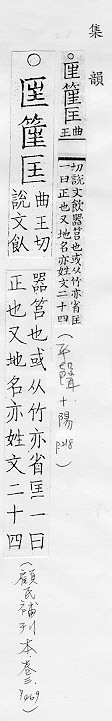 集韻
○匩筐匡曲王
切說文飲器筥也或从竹亦省匡
一曰正也又地名亦姓文二十四
(平聲十陽 p218)
○匩筐匡
曲王切
說文飲
器筥也或从竹亦省匡一曰
正也又地名亦姓文二十四
(顧氏補刊本·卷三 p469)